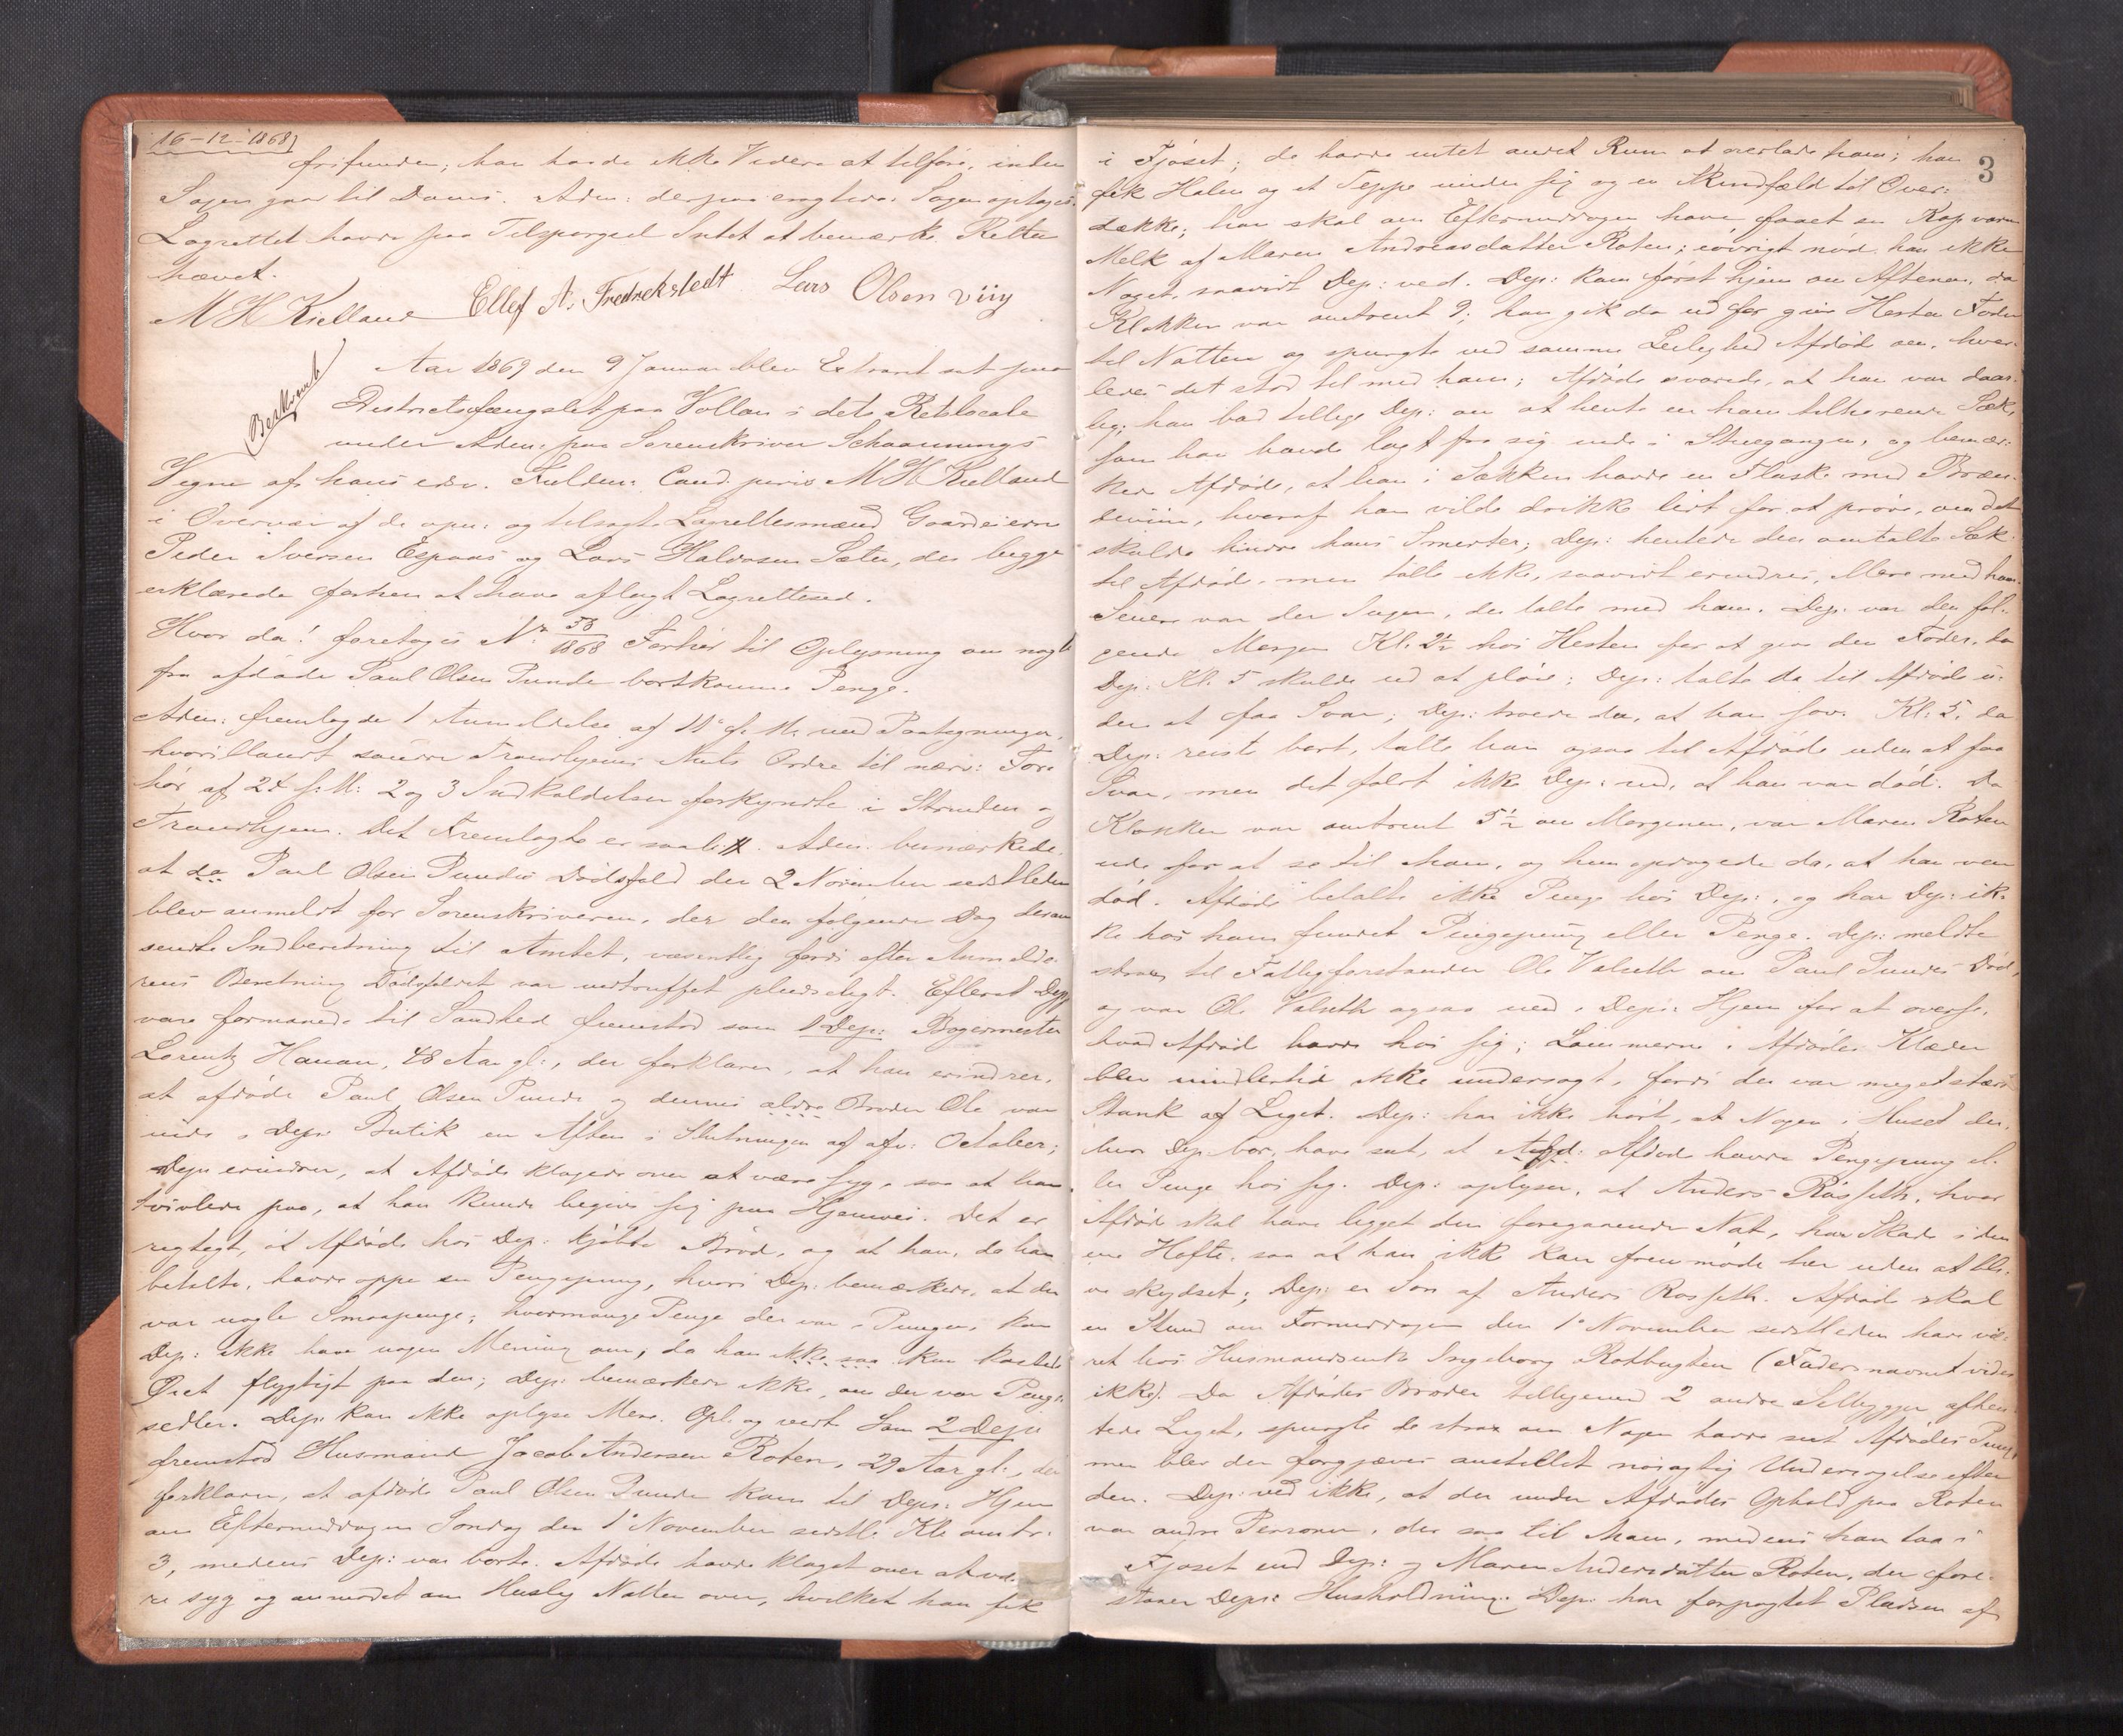 16-12-1868
frifunden; han havde ikke Videre at tilføie, inden
Sagen gaar til Doms. Adm: derpaa Sagen optaget.
Lagrettet havde paa Tilspørgsel Intet at bemærke. Retten
hævet.
M H Kielland Ellef A. Fredrekstedt Lars Olsen Viig
Aar 1869 den 9 Januar blev Extraret sat paa
Districtsfængslet paa Vollan i dets Retslocale
under Adm: paa Sorenskriver Schaannings
Vegne af hans edsv. Fuldm: Cand. juris M H Kielland
i Overvær af de opn: og tilsagte Lagrettesmænd Gaardeierne
Peder Iversen Espaas og Lars Halvorsen Sæter, der begge
erklærede forhen at have aflagt Lagrettesed.
Hvor da! foretoges No 58/1868 Forhør til Oplysning om nogle
fra afdøde Paul Olsen Punde bortkomne Penge.
Adm: fremlagde 1 Anmeldelse af 11te f. M. med Paategninger,
hvoriblandt Amts Ordre til nærv: For:
hør af 24 f: M: 2 og 3 Indkaldelser forkyndte i Strinden og
Trondhjem. Det Fremlagte er saal: ⧺. Adm. bemærkede,
at da Paul Olsen Pundes Dødsfald den 2 November sidstleden
blev anmeldt for Sorenskriveren, der den følgende Dag derom
sendte Indberetning til Amtet, væsentlig fordi efter Anmelde-
rens Beretning Dødsfaldet var indtruffet pludseligt. Efterat Depp
vare formanede til Sandhed fremstod som 1 Dep: Bagermester
Lorentz Hanan, 48 Aar gl:, der forklarer, at han erindrer,
at afdøde Paul Olsen Punde og dennes ældre Broder Ole var
inde i Deps Butik en Aften i Slutningen af afv: October;
Dep: erindrer, at Afdøde klagede over at være syg, saa at han
tvivlede paa, at han kunde begive sig paa Hjemvei. Det er
rigtigt, at Afdøde hos Dep: kjøbte Brød, og at han, da han
betalte, havde oppe en Pengepung, hvori Dep: bemærkede, at der
var nogle Smaapenge; hvormange Penge der var i Pungen, kan
Dep: ikke have nogen Mening om, da han ikke saa kun kastede
Øiet flygtigt paa den; Dep: bemærkede ikke, om der var Penge-
sedler. Dep: kan ikke oplyse Mere. Opl. og vedt. Som 2 Dep:
fremstod Husmand Jacob Andersen Roten, 29 Aar gl:, der
forklarer, at afdøde Paul Olsen Punde kom til Deps: Hjem
om Eftermiddagen Søndag den 1te November sidstl. Kl. omtr:
3, medens Dep: var borte. Afdøde havde klaget over at væ-
re syg og anmodet om Husly Natten over, hvilket han fik
3
i Fjøset; de havde intet andet Rum at overlade ham; han
fik Halm og et Teppe under sig og en Skindfæld til Over:
dække; han skal om Eftermiddagen have faaet en Kop varm
Melk af Maren Andreasdatter Roten; iøvrigt nød han ikke
Noget, saavidt Dep: ved. Dep: kom først hjem om Aftenen, da
Klokken var omtrent 9; han gik da ud for give Hesten Foder
til Natten og spurgte ved samme Leilighed Afdøde om, hvor-
ledes det stod til med ham; Afdøde svarede, at han var daar-
lig; han bad tillige Dep: om at hente en ham tilhørende Sæk,
som han havde lagt fra sig inde i Stuegangen, og bemær-
kede Afdøde, at han i Sækken havde en Flaske med Bræn-
deviin, hvoraf han vilde drikke lidt for at prøve, om det
skulde lindre hans Smerter; Dep: hentede den omtalte Sæk
til Afdøde, men talte ikke, saavidt erindres, Mere med ham.
Senere var der Ingen, der talte med ham. Dep: var den føl-
gende Morgen Kl. 2½ hos Hesten for at give den Foder, da
Dep: Kl. 5 skulde ud at pløie; Dep: talte da til Afdøde u-
den at faa Svar; Dep: troede da, at han sov. Kl: 5, da
Dep: reiste bort, talte han ogsaa til Afdøde uden at faa
Svar, men det faldt ikke Dep: ind, at han var død. Da
Klokken var omtrent 5½ om Morgenen, var Maren Roten
ude for at se til ham, og hun opdagede da, at han var
død. Afdøde betalte ikke Penge hos Dep:, og har Dep: ik-
ke hos ham fundet Pengepung eller Penge. Dep: meldte
strax til Fattigforstander Ole Valseth om Paul Pundes Død,
og var Ole Valseth ogsaa ned i Deps: Hjem for at overse,
hvad Afdøde havde hos sig; Lommerne i Afdødes Klæder
blev imidlertid ikke undersøgt, fordi der var meget stærk
Stank af Liget. Dep: har ikke hørt, at Nogen i Huset der,
hvor Dep. bor, have seet, at Afdøde havde Pengepung el-
ler Penge hos sig. Dep: oplyser, at Anders Røsseth, hvor
Afdøde skal have ligget den foregaaende Nat, har Skade i den
ene Hofte, saa at han ikke kan fremmøde her uden at bli-
ve skydset; Dep: er Søn af Anders Rosseth. Afdøde skal
en Stund om Formiddagen den 1te November sidstleden have væ-
ret hos Husmandsenke Ingeborg Rotbugten (Fadersnavnet vides
ikke). Da Afdødes Broder tilligemed 2 andre Selbygger afhen-
tede Liget, spurgte de strax om Nogen havde seet Afdødes Pung,
men blev der forgjæves anstillet nøiagtig Undersøgelse efter
den. Dep: ved ikke, at der under Afdødes Ophold paa Roten
var andre Personer, der saa til ham, medens han laa i
Fjøset end Dep: og Maren Andersdatter Roten, der fore-
staaer Deps: Husholdning. Dep: har forpagtet Pladsen af